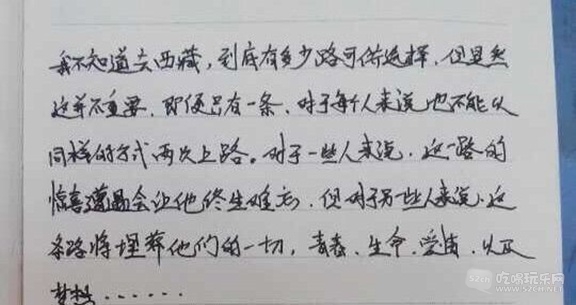 我不知道去西藏，到底有多少路可供选择，但显然
这并不重要，即便只有一条，对于每个人来说也不能以
同样的方式两次上路。对于一些人来说，这一路的
惊喜遭遇会让他终生难忘，但对于另一些人来说，这
条路将埋葬他们的一切，青春、生命、爱情、以及
梦想……
吃喝玩乐网